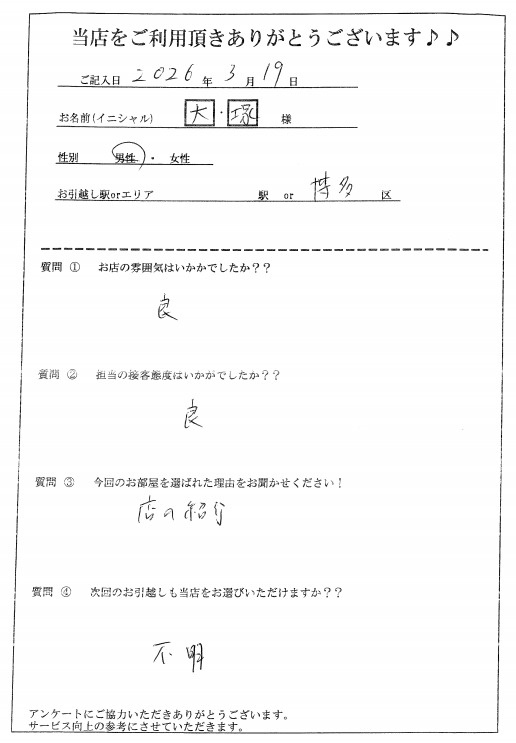 当店をご利用頂きありがとうございます♪♪
ご記入日 2026 年 3 月 19 日
お名前(イニシャル) 大・塚 様
性別 男性 ・ 女性
お引越し駅orエリア 駅 or 博多 区
質問 ① お店の雰囲気はいかかでしたか？？
良
質問 ② 担当の接客態度はいかがでしたか？？
良
質問 ③ 今回のお部屋を選ばれた理由をお聞かせください！
店の紹介
質問 ④ 次回のお引越しも当店をお選びいただけますか？？
不明
アンケートにご協力いただきありがとうございます。
サービス向上の参考にさせていただきます。